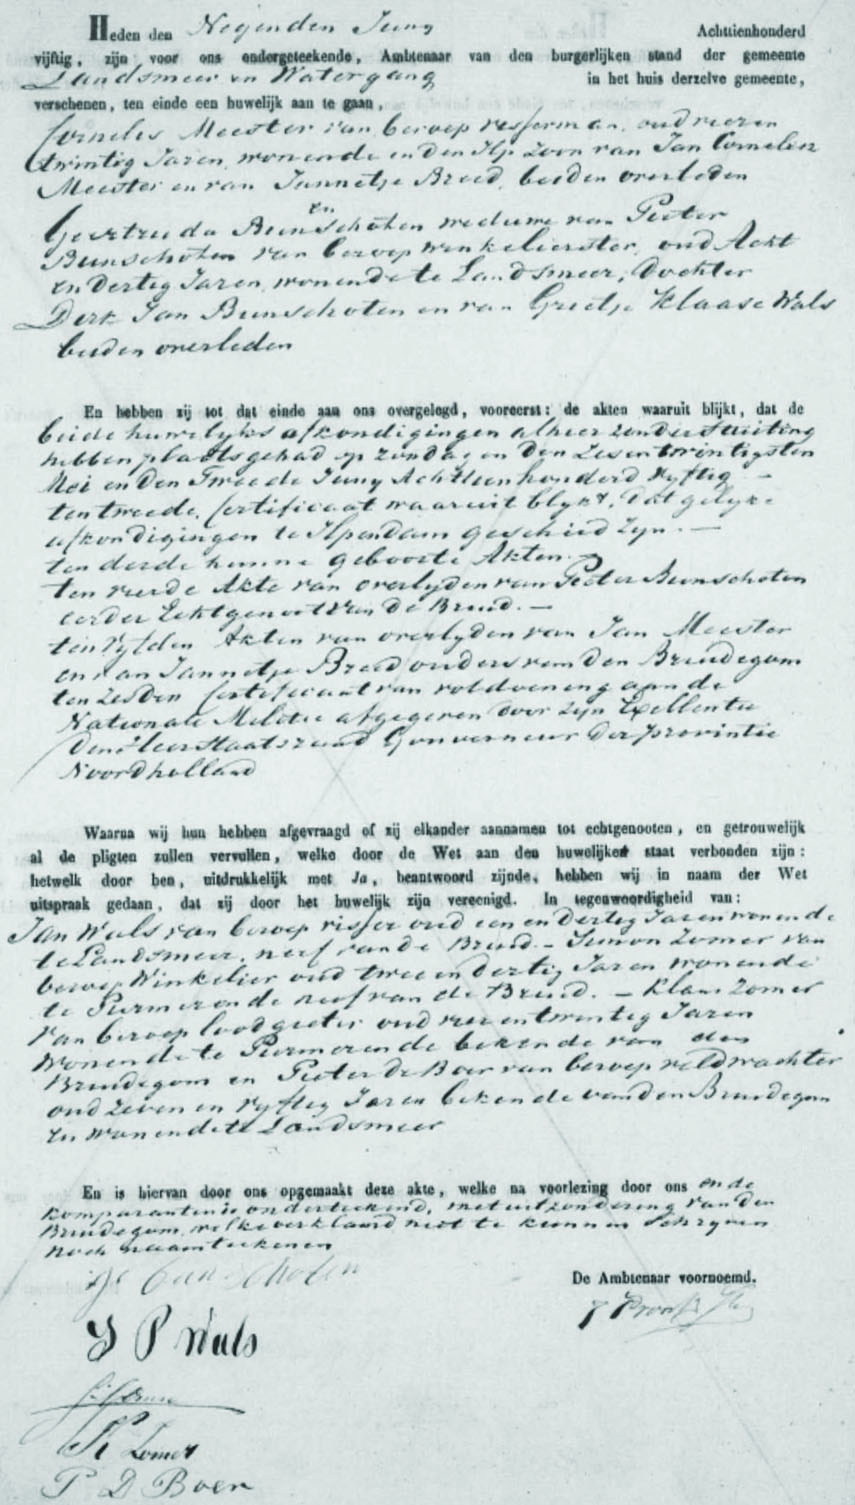 Heden den Negenden Juny Achttienhonderd
vijftig, zijn voor ons ondergeteekende, Ambtenaar van den burgerlijken stand der gemeente
Landsmeer en Watergang in het huis derzelve gemeente,
verschenen, ten einde een huwelijk aan te gaan,
Cornelis Meester van beroep visscherman, oud vier en
twintig Jaren, wonende en den Ilp Zoon van Jan Cornelisz
Meester en van Jannetje Breed, beiden overleden
en
Geertruida Bunschoten weduwe van Pieter
Bunschoten van beroep winkelierster, oud Acht
en dertig Jaren, wonende te Landsmeer, Dochter
Dirk Jan Bunschoten en van Grietje Klaase Wals
beiden overleden
En hebben zij tot dat einde aan ons overgelegd, vooreerst: de akten waaruit blijkt, dat de
beide huwelyks afkondigingen alhier zonder stuiting
hebben plaats gehad op zondag en den Zesentwintigsten
Mei en den Tweede Juny Achttienhonderd vyftig —
ten tweede, Certificaat waaruit blykt, dat gelyke
afkondigingen te Ilpendam geschied zyn. —
ten derde hunne geboorte Akten. —
ten vierde Akte van overlyden van Pieter Bunschoten
eerder Echtgenoot van de Bruid. —
ten vyfden Akten van overlyden van Jan Meester
en van Jannetje Breed ouders van den Bruidegom
ten zesden Certificaat van voldoening aan de
Nationale Militie afgegeven door zyn Exellentie
den Heer Staatsraad Gouverneur der provintie
Noordholland
Waarna wij hun hebben afgevraagd of zij elkander aannamen tot echtgenooten, en getrouwelijk
al de pligten zullen vervullen, welke door de Wet aan den huwelijken staat verbonden zijn:
hetwelk door hen, uitdrukkelijk met Ja, beantwoord zijnde, hebben wij in naam der Wet
uitspraak gedaan, dat zij door het huwelijk zijn vereenigd. In tegenwoordigheid van:
Jan Wals van beroep visser oud een en dertig Jaren wonende
te Landsmeer, neef van de Bruid. — Simon Zomer van
beroep Winkelier oud twee en dertig Jaren wonende
te Purmerende neef van de Bruid. — Klaas Zomer
van beroep loodgieter oud vier en twintig Jaren
wonende te Purmerende bekende van den
Bruidegom en Pieter De Boer van beroep veldwachter
oud zeven en vyftig Jaren bekende van den Bruidegom
en wonende te Landsmeer
En is hiervan door ons opgemaakt deze akte, welke na voorlezing door ons en de
komparanten is onderteekend, met uitzondering van den
Bruidegom, welke verklaard niet te kunnen schryven
noch naamteekenen
G Bunschoten
De Ambtenaar voornoemd.
J P Wals
K Zomer
P D Boer